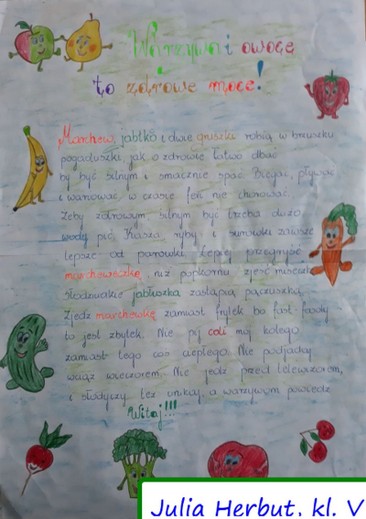 Warzywa i owoce
to zdrowe moce!
Marchew, jabłko i dwie gruszki robią w brzuszku
pogaduszki, jak o zdrowie łatwo dbać
by być silnym i smacznie spać. Biegać, pływać
i wariować w czasie ferii nie chorować.
Żeby zdrowym silnym być trzeba dużo
wody pić. Kasza, ryby i surówki zawsze
lepsze od parówki. Lepiej przegryźć
marcheweczkę niż popkornu zjeść miseczkę
Słodziutkie jabłuszka zastąpią pączuszka.
Zjedz marchewkę zamiast frytek bo fast-foody
to jest zbytek. Nie pij coli mój kolego
zamiast tego coś ciepłego. Nie podjadaj
wciąż wieczorem. Nie jedz przed telewizorem,
i słodyczy też unikaj, a warzywom powiedz
Witaj!!!
Julia Herbut, kl. V